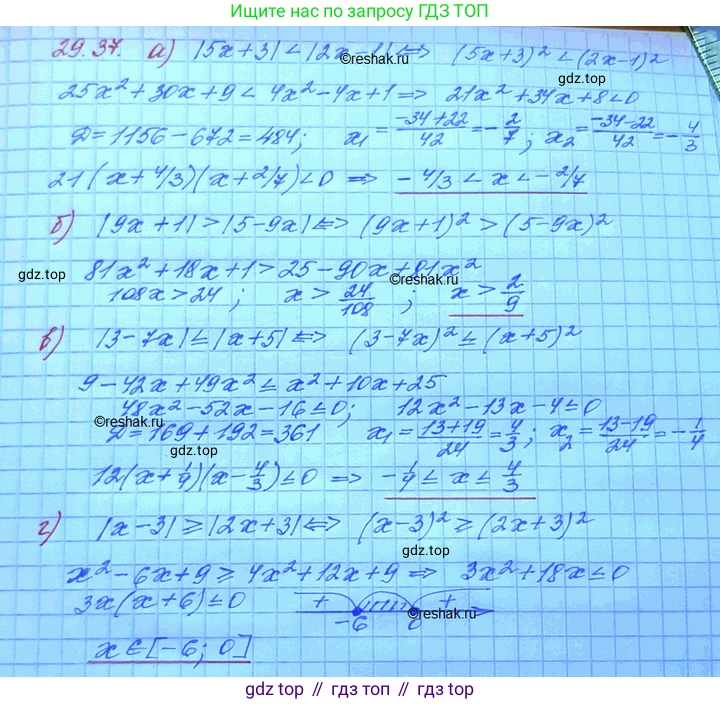 Ищите нас по запросу ГДЗ ТОП
29.37. а) |5x+3| < |2x-1| ⇔ (5x+3)² < (2x-1)²
©reshak.ru
gdz.top
25x²+30x+9 < 4x²-4x+1 ⇒ 21x²+34x+8<0
Д=1156-672=484; x₁ = (-34+22)/42 = -2/7; x₂ = (-34-22)/42 = -4/3
21(x+4/3)(x+2/7)<0 ⇒ -4/3 < x < -2/7
б) |9x+1| > |5-9x| ⇔ (9x+1)² > (5-9x)²
gdz.top
81x²+18x+1 > 25-90x+81x²
©reshak.ru
108x > 24; x > 24/108; x > 2/9
в) |3-7x| ≤ |x+5| ⇔ (3-7x)² ≤ (x+5)²
9-42x+49x² ≤ x²+10x+25
48x²-52x-16 ≤ 0; 12x²-13x-4 ≤ 0
©reshak.ru
Д=169+192=361 x₁ = (13+19)/24 = 4/3; x₂ = (13-19)/24 = -1/4
gdz.top
12(x+1/4)(x-4/3) ≤ 0 ⇒ -1/4 ≤ x ≤ 4/3
г) |x-3| ≥ |2x+3| ⇔ (x-3)² ≥ (2x+3)²
gdz.top
x²-6x+9 ≥ 4x²+12x+9 ⇒ 3x²+18x ≤ 0
3x(x+6) ≤ 0 + +
©reshak.ru
-6 0
x∈[-6; 0]
gdz.top // гдз топ // gdz.top // гдз топ